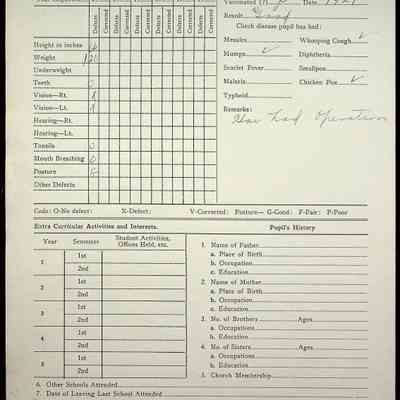 Vaccinated (?) Date 1921
Result Good
Check disease pupil has had:
Defects Corrected Defects Corrected Defects Corrected Defects Corrected Defects Corrected
Height in inches
Weight
Underweight
Teeth
Vision—Rt.
Vision—Lt.
Hearing—Rt.
Hearing—Lt.
Tonsils O
Mouth Breathing O
Posture G
Other Defects
Measles Whooping Cough ✓
Mumps ✓ Diphtheria
Scarlet Fever Smallpox
Malaria Chicken Pox ✓
Typhoid
Remarks:
Has had Operation
Code: O-No defect: X-Defect: V-Corrected: Posture— G-Good: F-Fair: P-Poor
Extra Curricular Activities and Interests.
Year Semester Student Activities, Offices Held, etc.
1 1st
2nd
2 1st
2nd
3 1st
2nd
4 1st
2nd
5 1st
2nd
Pupil's History
1. Name of Father
a. Place of Birth
b. Occupation
c. Education
2. Name of Mother
a. Place of Birth
b. Occupation
c. Education
3. No. of Brothers Ages
a. Occupations
b. Education
4. No. of Sisters Ages
a. Occupations
b. Education
5. Church Membership
6. Other Schools Attended
7. Date of Leaving Last School Attended